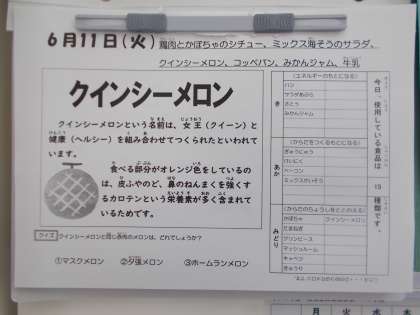 6月11日(火) 鶏肉とかぼちゃのシチュー、ミックス海そうのサラダ、
クインシーメロン、コッペパン、みかんジャム、牛乳
クインシーメロン
クインシーメロンという名前は、女王(クイーン)と
健康(ヘルシー)を組み合わせてつくられたといわれて
います。
食べる部分がオレンジ色をしているの
は、皮ふやのど、鼻のねんまくを強くす
るカロテンという栄養素が多く含まれて
いるためです。
クイズ クインシーメロンと同じ赤肉のメロンは、どれでしょうか?
①マスクメロン ②夕張メロン ③ホームランメロン
今日、使用している食品は 19 種類です。
き
(エネルギーのもとになる)
パン
マーガリン
さとう
みかんジャム
あか
(からだをつくるもとになる)
ぎゅうにゅう
けいにく
ベーコン
ミックスかいそう
みどり
(からだのちょうしをととのえる)
かぼちゃ クインシーメロン
たまねぎ
グリンピース
マッシュルーム
キャベツ
きゅうり
月 火 水